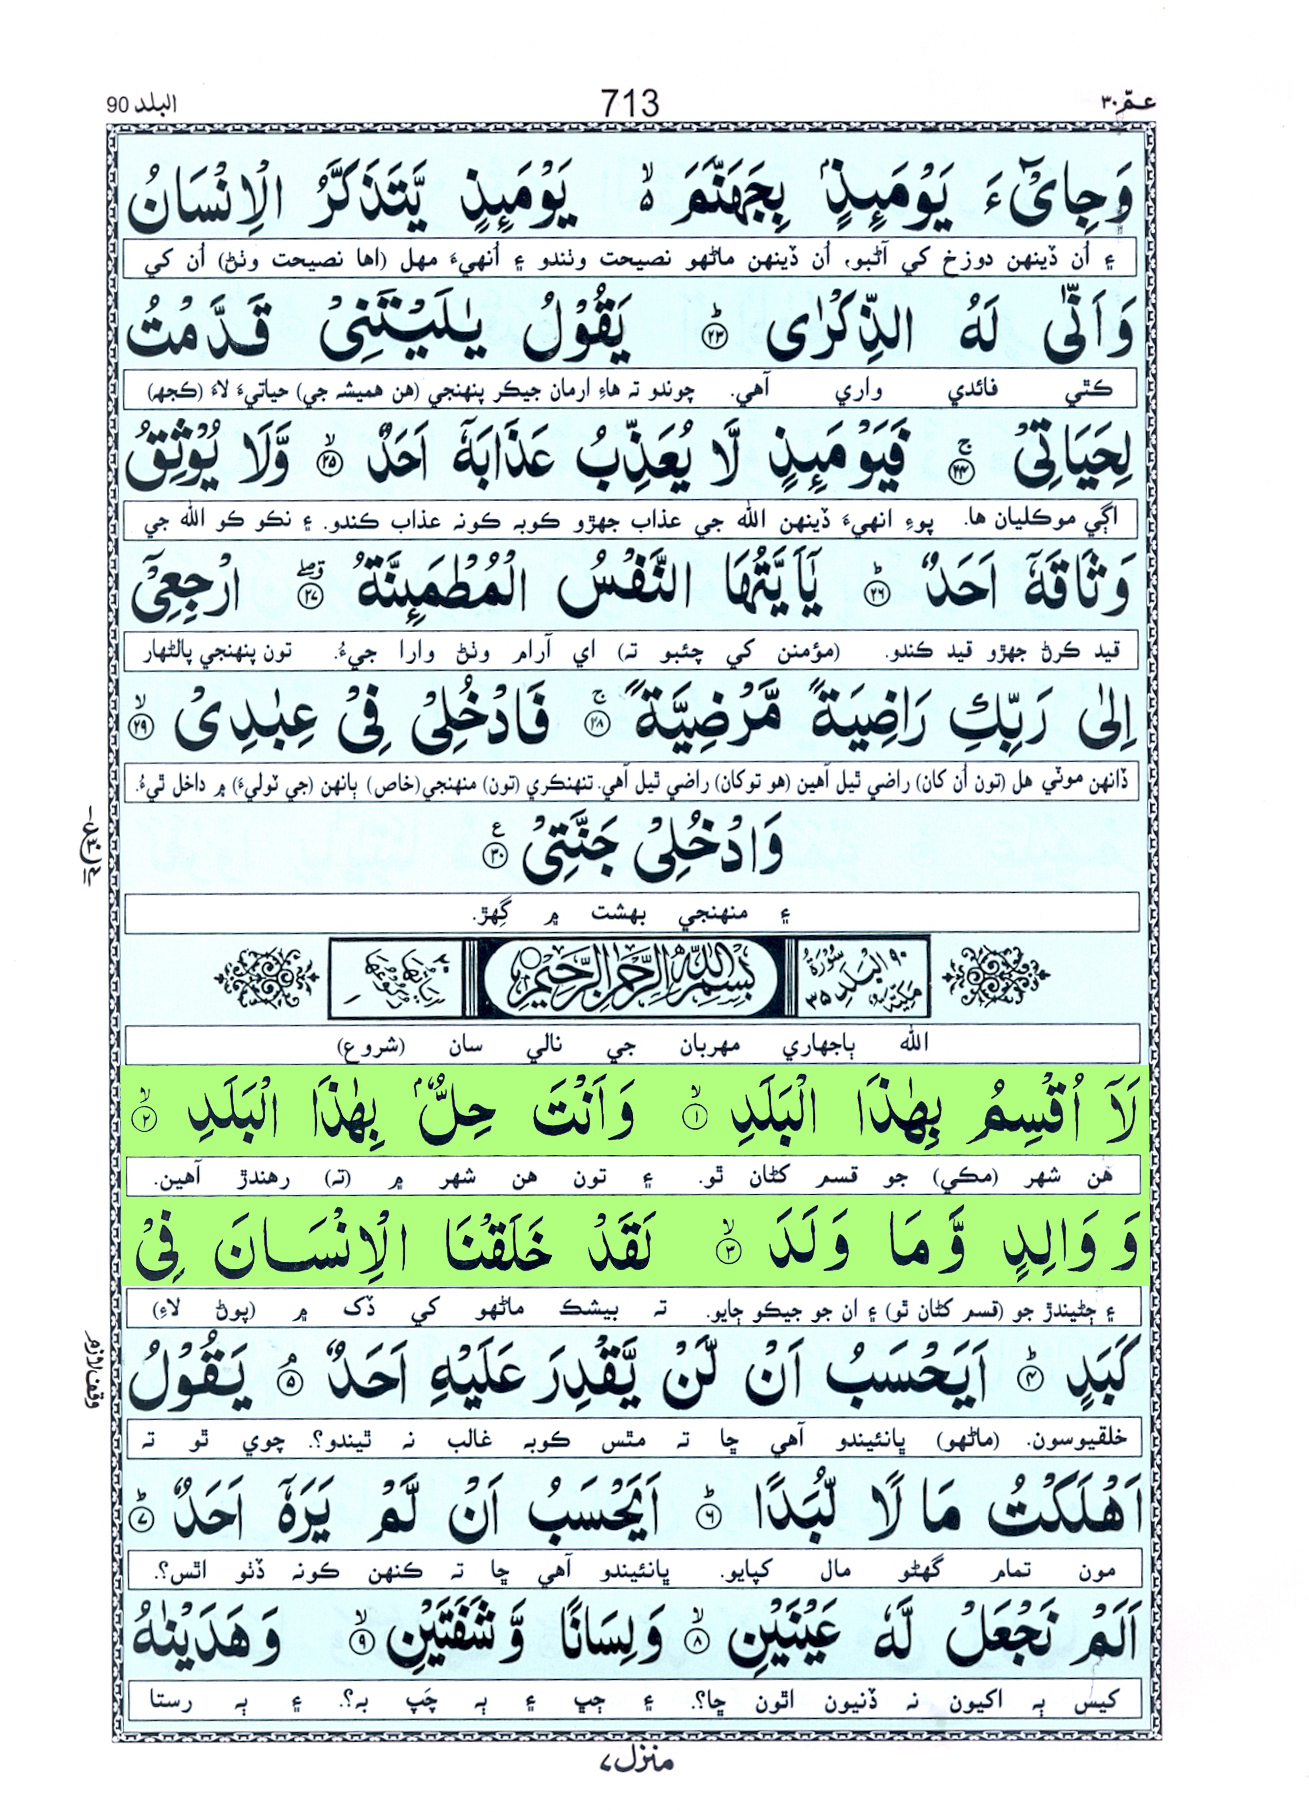 عمّ ۳۰
713
البلد 90
وَجِایْٓءَ یَوْمَىِٕذٍۭ بِجَهَنَّمَ ۙ۬ یَوْمَىِٕذٍ یَّتَذَكَّرُ الْاِنْسَانُ
۽ اُن ڏينهن دوزخ کي آڻبو، اُن ڏينهن ماڻهو نصيحت وٺندو ۽ اُنهيءَ مهل (اها نصيحت وٺڻ) اُن کي
وَاَنّٰی لَهُ الذِّكْرٰی ؕ۲۳ یَقُوْلُ یٰلَیْتَنِیْ قَدَّمْتُ
ڪٿي فائدي واري آهي. چوندو تہ هاءِ ارمان جيڪر پنهنجي (هن هميشہ جي) حياتيءَ لاءِ (ڪجهہ)
لِحَیَاتِیْ ۚ۲۴ فَیَوْمَىِٕذٍ لَّا یُعَذِّبُ عَذَابَهٗۤ اَحَدٌ ۙ۲۵ وَّلَا یُوْثِقُ
اڳي موڪليان ها. پوءِ انهيءَ ڏينهن الله جي عذاب جهڙو ڪوبہ ڪونہ عذاب ڪندو. ۽ نڪو ڪو الله جي
وَثَاقَهٗۤ اَحَدٌ ؕ۲۶ یٰۤاَیَّتُهَا النَّفْسُ الْمُطْمَىِٕنَّةُ ۗۖ۲۷ ارْجِعِیْۤ
قيد ڪرڻ جهڙو قيد ڪندو. (مؤمنن کي چئبو تہ) اي آرام وٺڻ وارا جيءُ. تون پنهنجي پالڻهار
اِلٰی رَبِّكِ رَاضِیَةً مَّرْضِیَّةً ۚ۲۸ فَادْخُلِیْ فِیْ عِبٰدِیْ ۙ۲۹
ڏانهن موٽي هل (تون اُن کان) راضي ٿيل آهين (هو توکان) راضي ٿيل آهي. تنهنڪري (تون) منهنجي(خاص) ٻانهن (جي ٽوليءَ) ۾ داخل ٿيءُ.
وَادْخُلِیْ جَنَّتِیْ ۠۳۰
۽ منهنجي بهشت ۾ گهڙ.
۹۰ سُوْرَةُ الْبَلَدِ مَكِّیَّةٌ ۳۵
بِسْمِ اللهِ الرَّحْمٰنِ الرَّحِیْمِ
اٰیَاتُهَا ۲۰ رُكُوْعُهَا ۱
الله ٻاجهاري مهربان جي نالي سان (شروع)
لَاۤ اُقْسِمُ بِهٰذَا الْبَلَدِ ۙ۱ وَاَنْتَ حِلٌّۢ بِهٰذَا الْبَلَدِ ۙ۲
هن شهر (مڪي) جو قسم کڻان ٿو. ۽ تون هن شهر ۾ (تہ) رهندڙ آهين.
وَ وَالِدٍ وَّ مَا وَلَدَ ۙ۳ لَقَدْ خَلَقْنَا الْاِنْسَانَ فِیْ
۽ ڄڻيندڙ جو (قسم کڻان ٿو) ۽ ان جو جيڪو ڄايو. تہ بيشڪ ماڻهو کي ڏک ۾ (پوڻ لاءِ)
كَبَدٍ ؕ۴ اَیَحْسَبُ اَنْ لَّنْ یَّقْدِرَ عَلَیْهِ اَحَدٌ ۘ۵ یَقُوْلُ
وقف لازم
خلقيوسون. (ماڻهو) ڀانئيندو آهي ڇا تہ مٿس ڪوبہ غالب نہ ٿيندو؟. چوي ٿو تہ
اَهْلَكْتُ مَا لًا لُّبَدًا ؕ۶ اَیَحْسَبُ اَنْ لَّمْ یَرَهٗۤ اَحَدٌ ؕ۷
مون تمام گهڻو مال کپايو. ڀانئيندو آهي ڇا تہ ڪنهن ڪونہ ڏٺو اٿس؟.
اَلَمْ نَجْعَلْ لَّهٗ عَیْنَیْنِ ۙ۸ وَلِسَانًا وَّشَفَتَیْنِ ۙ۹ وَهَدَیْنٰهُ
کيس ٻہ اکيون نہ ڏنيون اٿون ڇا؟. ۽ ڄڀ ۽ ٻہ چَپ بہ؟. ۽ ٻہ رستا
منزل ۷